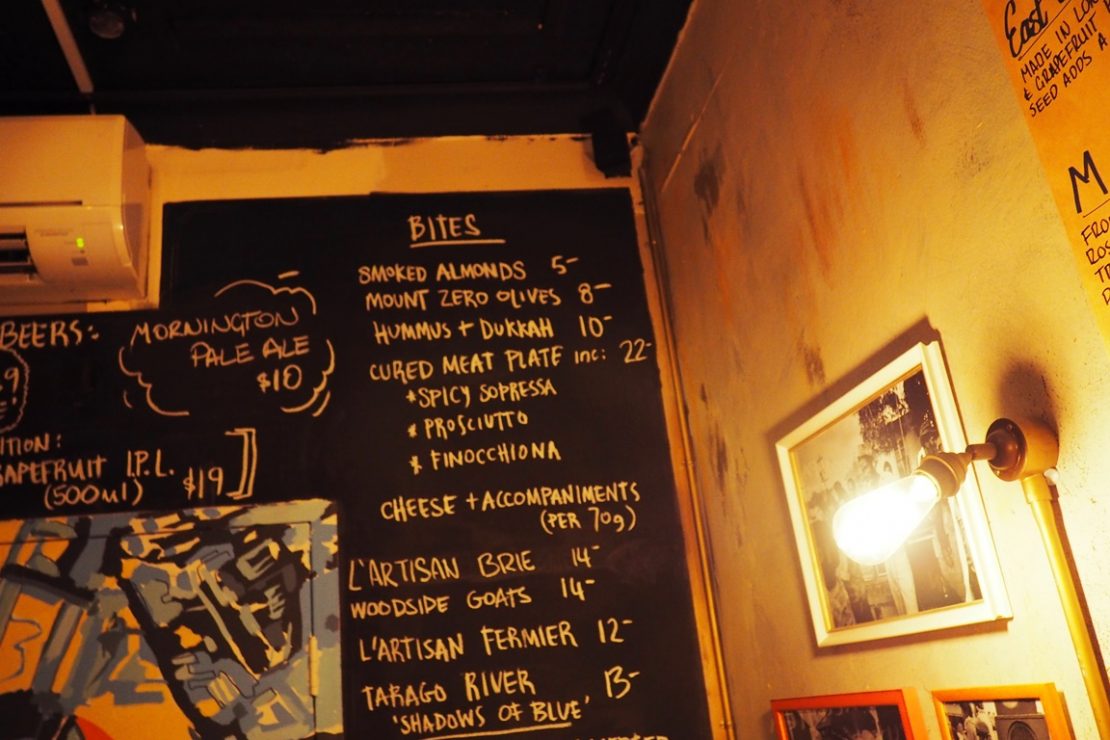 BEERS:
MORNINGTON
PALE ALE
$10
GRAPEFRUIT I.P.L.
(500ml) $19
BITES
SMOKED ALMONDS 5-
MOUNT ZERO OLIVES 8-
HUMMUS + DUKKAH 10-
CURED MEAT PLATE inc: 22-
*SPICY SOPRESSA
* PROSCIUTTO
* FINOCCHIONA
CHEESE + ACCOMPANIMENTS
(PER 70g)
L'ARTISAN BRIE 14-
WOODSIDE GOATS 14-
L'ARTISAN FERMIER 12-
TARAGO RIVER 13-
'SHADOWS OF BLUE'
East
MADE IN LON
& GRAPEFRUIT
SEED ADDS A
M
FRO
ROS